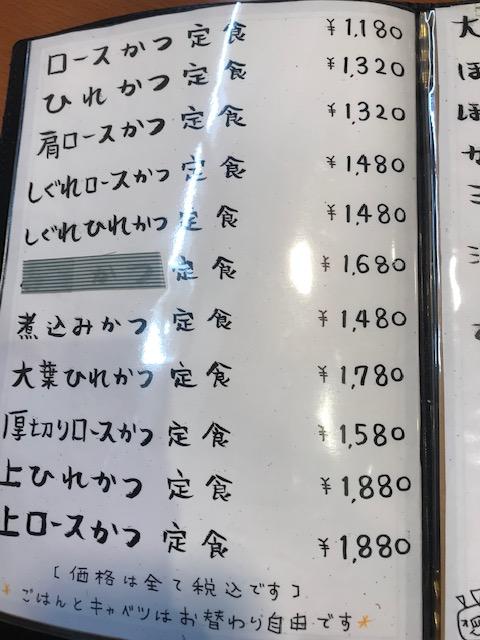 ロースかつ 定食 ¥1,180
ひれかつ 定食 ¥1,320
肩ロースかつ 定食 ¥1,320
しぐれロースかつ 定食 ¥1,480
しぐれひれかつ 定食 ¥1,480
定食 ¥1,680
煮込みかつ 定食 ¥1,480
大葉ひれかつ 定食 ¥1,780
厚切りロースかつ 定食 ¥1,580
上ひれかつ 定食 ¥1,880
上ロースかつ 定食 ¥1,880
[価格は全て税込です]
*ごはんとキャベツはお替わり自由です*
大
ほ
ほ